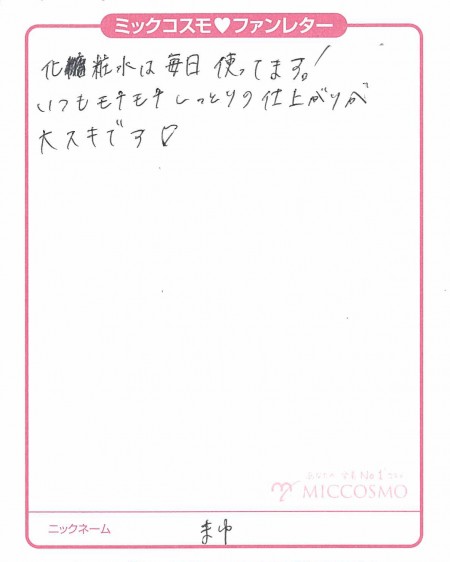 ミックコスモ♥ファンレター
化粧水は毎日使ってます!
いつもモチモチしっとりの仕上がりが
大スキです♡
MICCOSMO
ニックネーム
まゆ